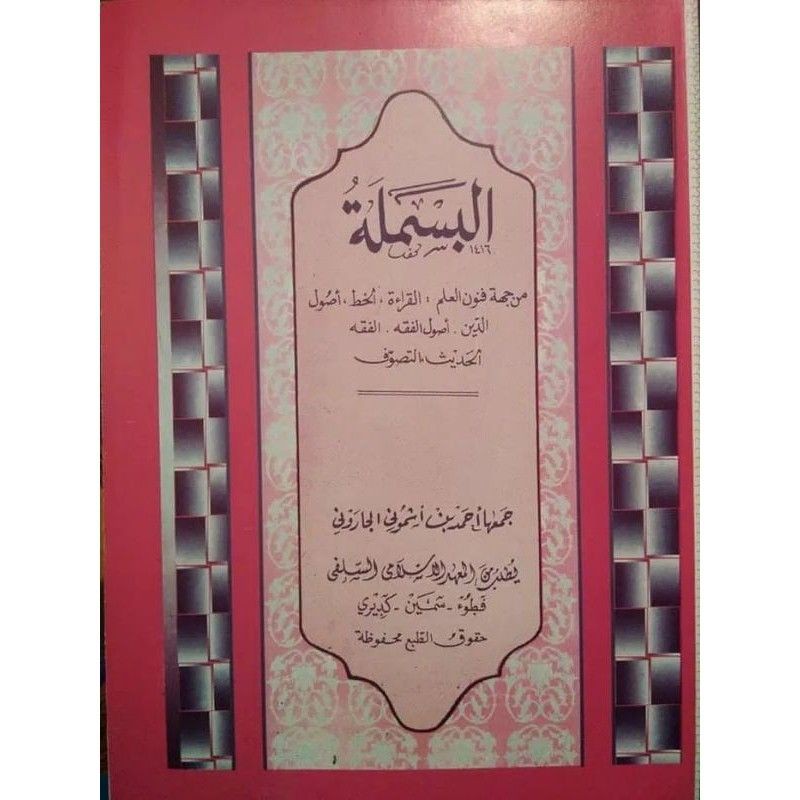 البسملةُ
١٤١٦
من جهة فنون العلم : القراءة ، الخط ، أصول
الدين . أصول الفقه . الفقه
الحديث ، التصوف
جمعها أحمد بن أشموني الجاروني
يطلب من المعهد الإسلامي السلفى
فطوء - سمين - كديري
حقوق الطبع محفوظة